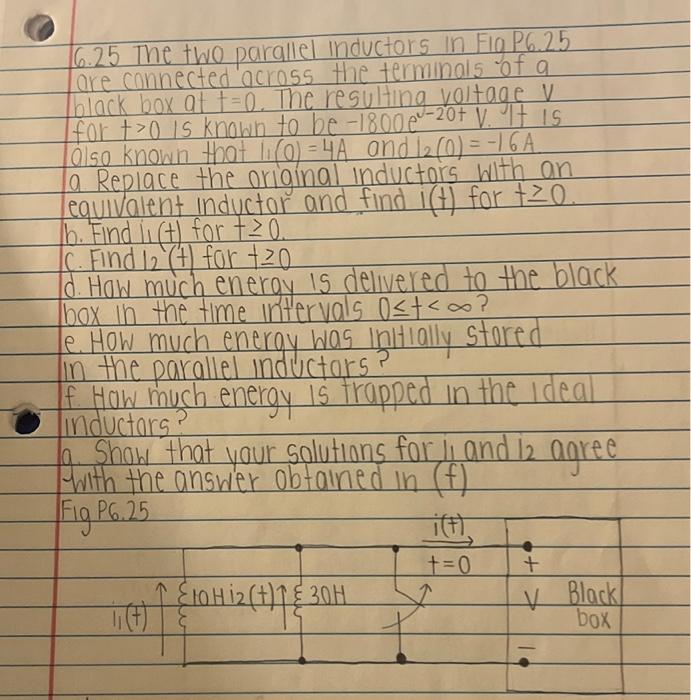 6.25 The two parallel inductors in Fig P6.25
are connected across the terminals of a
black box at t=0. The resulting voltage v
for t>0 is known to be -1800e^-20t V. It is
also known that i1(0)=4A and i2(0)=-16A
a Replace the original inductors with an
equivalent inductor and find i(t) for t≥0.
b. Find i1(t) for t≥0.
c. Find i2(t) for t≥0
d. How much energy is delivered to the black
box in the time intervals 0≤t<∞?
e. How much energy was initially stored
in the parallel inductors?
f. How much energy is trapped in the ideal
inductors?
g. Show that your solutions for i1 and i2 agree
with the answer obtained in (f)
Fig P6.25
i(t)
t=0
+
i1(t)
10H
i2(t)
30H
v
Black
box
-